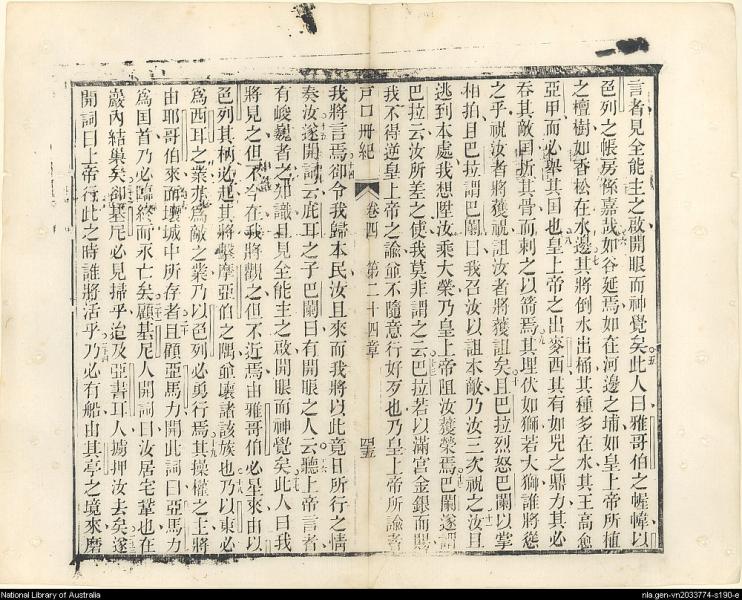 言者見全能主之啟開眼而神覺矣此人曰雅哥伯之幄幃以
色列之帳房條嘉哉如谷延焉如在河邊之埔如皇上帝所植
之檀樹如香松在水邊其將倒水出桶其種多在水其王高愈
亞甲而必舉其国也皇上帝之出麥西其有如兕之鼎力其必
吞其敵国折其骨而刺之以箭焉其埋伏如獅若大獅誰將慫
之乎祝汝者將獲祝詛汝者將獲詛矣且巴拉烈怒巴闌以掌
相拍且巴拉謂巴闌曰我召汝以詛本敵乃汝三次祝之汝且
逃到本處我想陞汝乘大榮乃皇上帝阻汝獲榮焉巴闌遂謂
巴拉云汝所差之使我莫非謂之云巴拉若以滿宮金銀而賜
我不得逆皇上帝之諭命不隨意行好歹也乃皇上帝所諭者
戶口冊紀 卷四 第二十四章
我將言焉卻今我歸本民汝且來而我將以此竟日所行之情
奏汝遂開詞云庇耳之子巴闌曰有開眼之人云聽上帝言者
有峻巍者之知識且見全能主之啟開眼而神覺矣此人曰我
將見之但不今在我將觀之但不近焉由雅哥伯必星來由以
色列其柄必起其將擊摩亞伯之隅並壞諸該族也乃以東必
為西耳之業亦為敵之業乃以色列必勇行焉其操權之主將
由耶哥伯來而壞城中所存者且顧亞馬力開此詞曰亞馬力
為国首乃必臨終而永亡矣顧基尼人開詞曰汝居宅鞏也在
巖內結巢矣卻基尼必見掃乎迨及亞書耳人擄押汝去矣遂
開詞曰上帝行此之時誰將活乎乃必有船由其亭之境來磨
National Library of Australia
nla.gen-vn2033774-s190-e